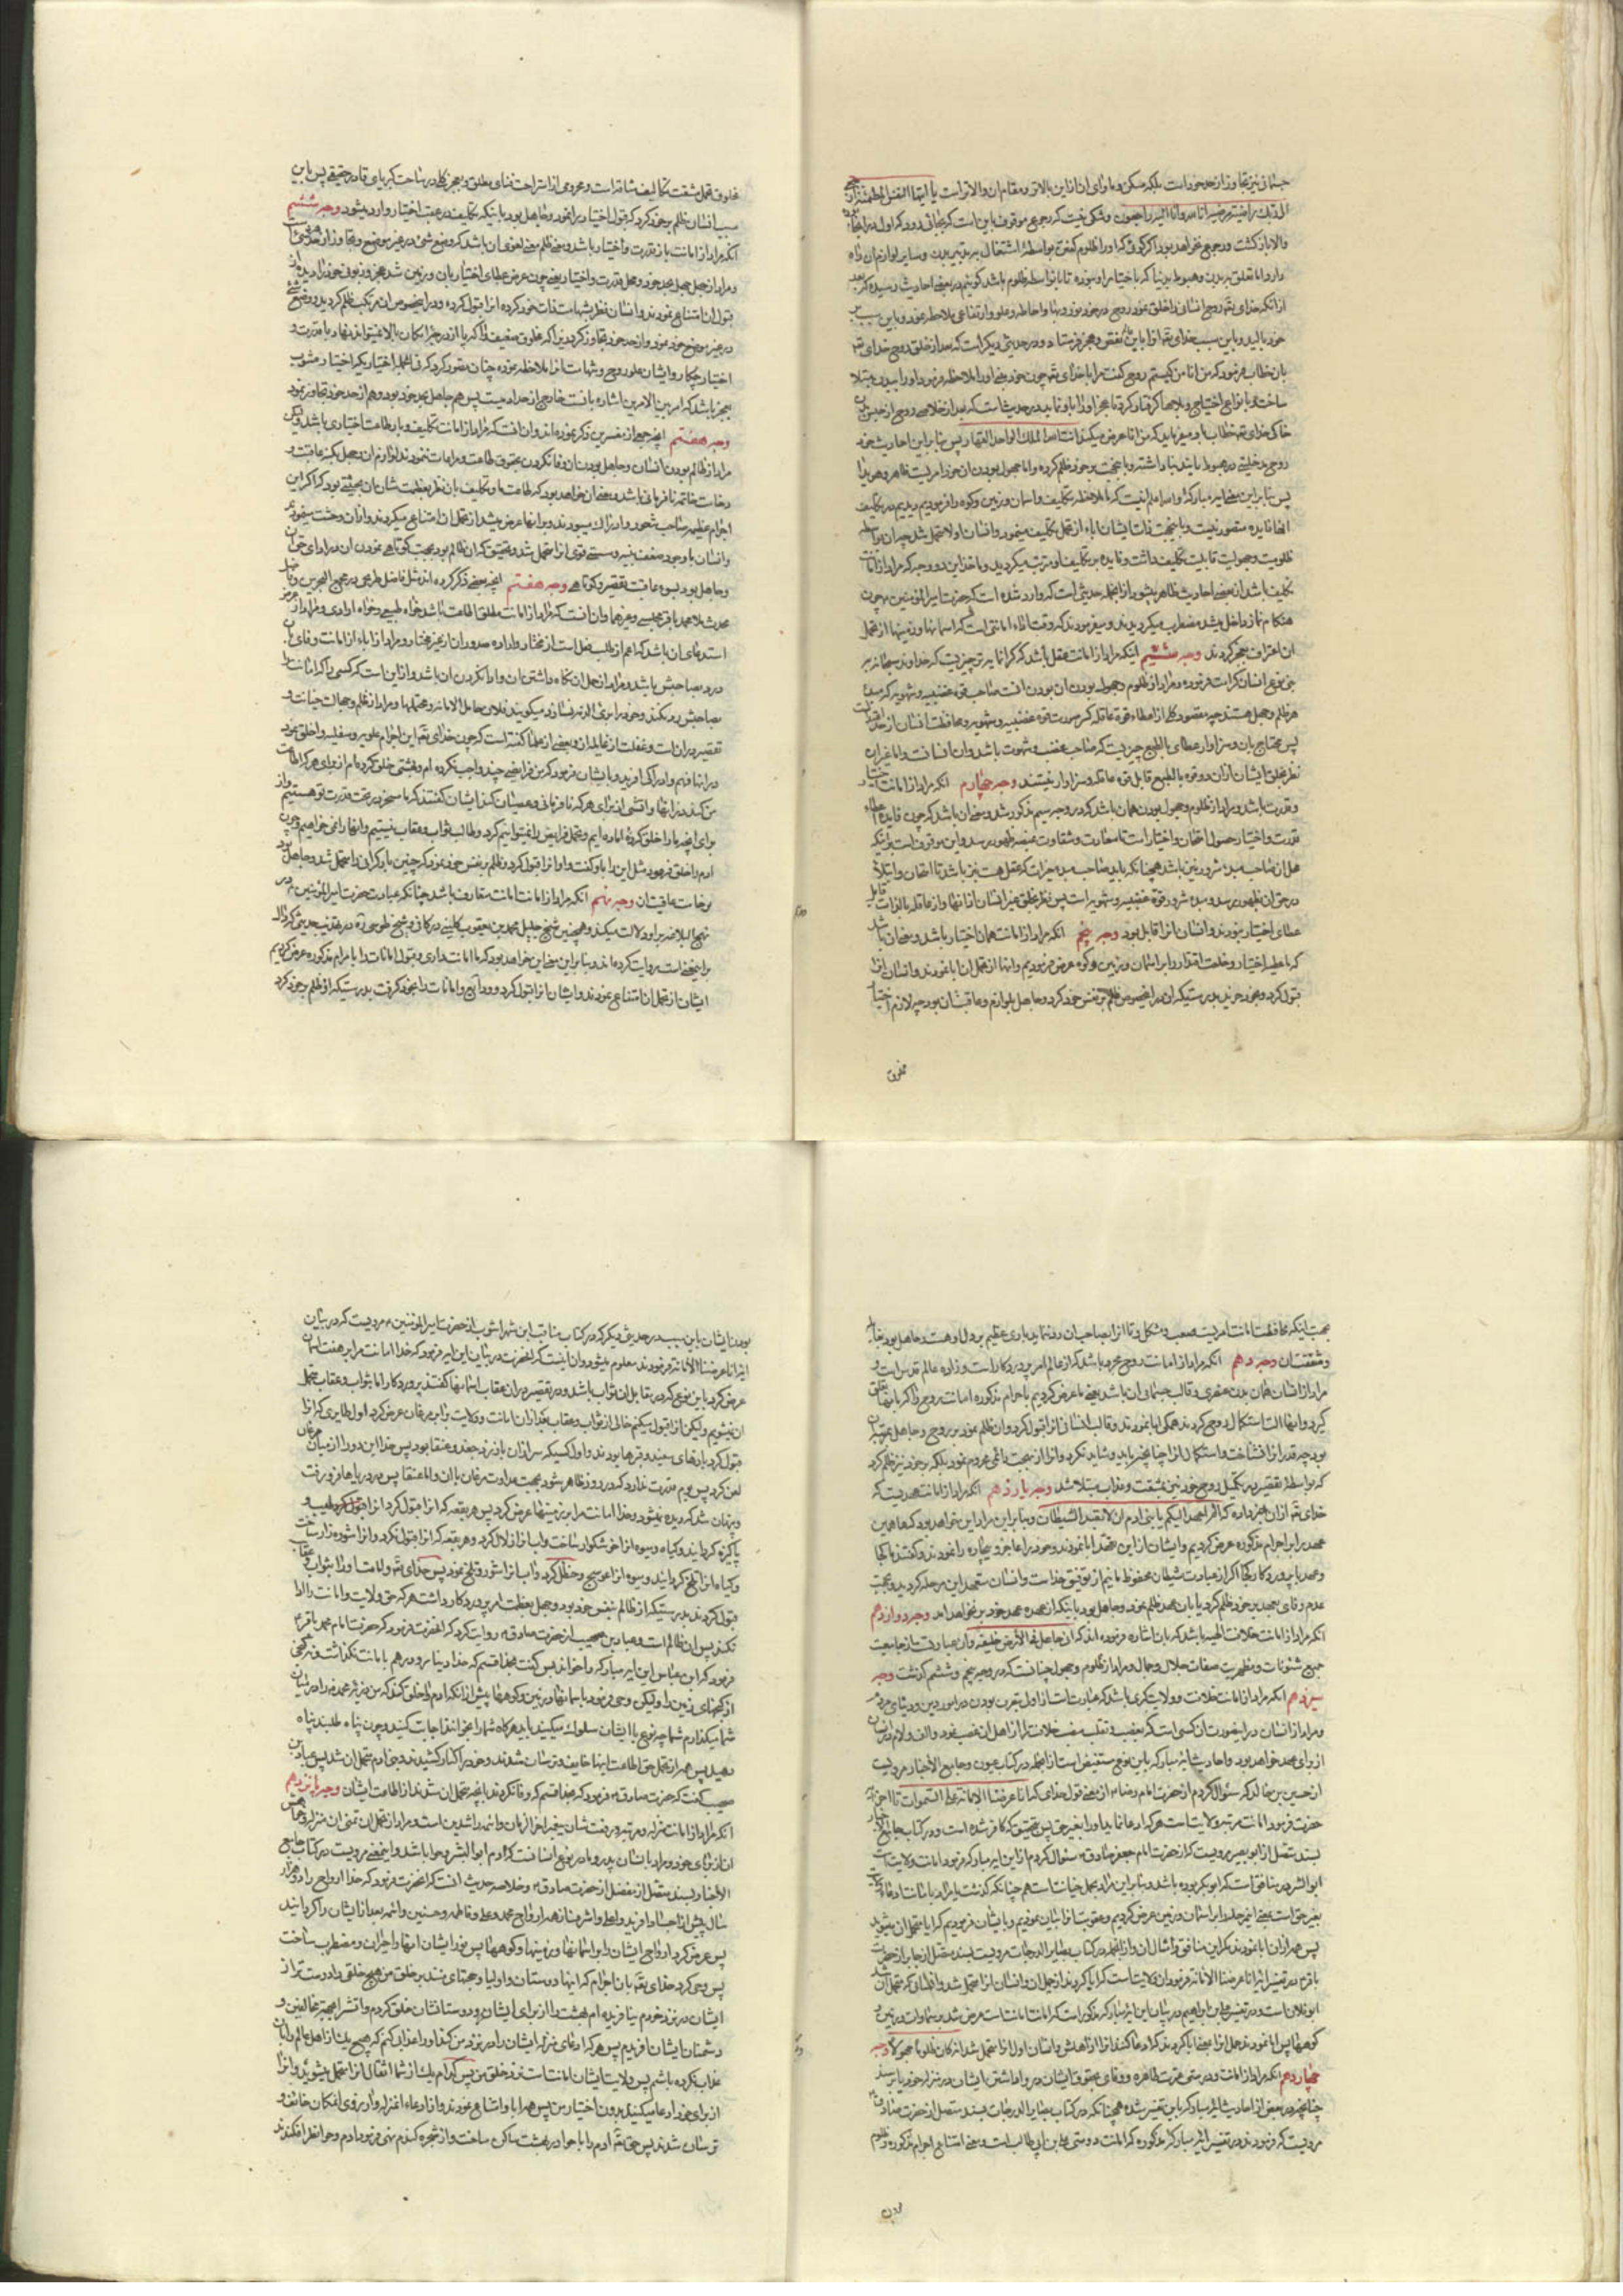 جسمانی نیز تجاوز از حد خود است بلکه مسکن و ماوای او از این بالاتر و مقام او والاتر است یا ایتها النفس المطمئنة ارجعی
الی ربک راضیة مرضیة انا لله وانا الیه راجعون وشکی نیست که رجوع موقوف باین است که بجائی رود که اول در انجا بوده
والا بازگشت و رجوع نخواهد بود اگر گوئی که او را ظلوم گفتن بواسطهٔ اشتغال به تدبیر بدن و سایر لوازم آن راه
دارد اما تعلق به بدن و هبوط بدنیا که باختیار او نبوده تا بانواسطه ظلوم باشد گوئیم در بعضی احادیث رسیده که بعد
از انکه خدای تعه روح انسانی را خلق نمود روح در خود نور و بها و احاطه و علو و ارتفاعی ملاحظه نمود و باین سبب بر
خود بالید و باین سبب خدای تعه او را باین نقص و عجز فرستاد و در حدیثی دیگر است که بعد از خلق روح خدای تعه
بان خطاب فرمود که من انا من کیستم روح گفت مرا با خدای تعه چون خود بینی او را ملاحظه فرمود او را ببدن مبتلا
ساخت و بانواع احتیاج و بلاها گرفتار کرد تا عجز او را باو نماید در حدیث است که بعد از خلاصی روح از حبس تن
خاکی خدای تعه خطاب باو میفرماید که من انا عرض میکند انت الله الملک الواحد القهار پس بنا بر این احادیث خود
روح مدخلیتی در هبوط باین بناء داشته و باینجهت بر خود ظلم کرده و اما جهول بودن آن خود امریست ظاهر و هویدا
پس بنا بر این معنی ایه مبارکه والله اعلم اینست که ما ملاحظه تکلیف و اسمان و زمین و کوه را فرمودیم دیدیم در تکلیف
انها فایده متصور نیست و باینجهت ذات ایشان اباء از تحمل تکلیف مینمود و انسان او را متحمل شد چه ان بواسطه
ظلومیت و جهولیت قابلیت تکلیف داشت و فایده بر تکلیف او مترتب میگردید و ماخذ این دو وجه که مراد از امانت
تکلیف باشد از بعضی احادیث ظاهر میشود از انجمله حدیثی است که وارد شده است که حضرت امیر المؤمنین ع چون
هنگام نماز داخل میشد مضطرب میگردیدند و میفرمودند که وقت اداء امانتی است که اسمانها و زمینها از تحمل
ان اعتراف بعجز کردند وجه سیم اینکه مراد از امانت عقل باشد که گرانمایه تر چیزیست که خداوند سبحانه بر
بنی نوع انسان کرامت فرموده و مراد از ظلوم و جهول بودن ان بودن انست صاحب قوه غضبیه و شهویه که مبدا
هر ظلم و جهل هستند چه مقصود کلی از اعطاء قوه عاقله کسر سورت قوه غضبیه و شهویه و محافظت انسان از حد اقتدار است
پس محتاج بان و سزاوار عطای بالطبع چیزیست که صاحب غضب و شهوت باشد و ان انسانست و اما غیر ان
نظر بخلق ایشان از ان دو قوه بالطبع قابل قوه عاقله و سزاوار نیستند وجه چهارم انکه مراد از امانت اختیار
و قدرت باشد و مراد از ظلوم و جهول بودن همان باشد که در وجه سیم مذکور شد و معنی ان باشد که چون فایده اعطاء
قدرت و اختیار حصول امتحان و اختیار است تا سعادت و شقاوت بمنصه ظهور رسد و این موقوف است بر اینکه
محل ان صاحب مبدء شرور نیز باشد همچنانکه باید صاحب مبدء خیرات که عقل هست نیز باشد تا امتحان و ابتلا
در حق ان بظهور رسد و مبدء شرور قوه غضبیه و شهویه است پس نظر بخلق غیر انسان از انها و از عاقله بالذات قابل
عطای اختیار نبودند و انسان انرا قابل بود وجه پنجم انکه مراد از امانت همان اختیار باشد و معنی ان باشد
که ما عطیه اختیار و خلعت اقتدار را بر اسمان و زمین و کوه عرض فرمودیم و انها از تحمل ان ابا نمودند و انسان انرا
قبول کرد و بخود خرید بدرستیکه ان در اینخصوص ظلم بر نفس خود کرد و جاهل بلوازم و عاقبت ان بود چه لازم اختیار
مخلوق
مخلوق تحمل مشقت تکالیف شاقه است و محرومی از استراحت فنای مطلق و عجز کلی در ساحت کبریای قادر حقیقی پس باین
سبب انسان ظلم بر خود کرد که قبول اختیار را نمود و جاهل بود باینکه تکلیف در عقب اختیار وارد میشود وجه ششم
انکه مراد از امانت باز قدرت و اختیار باشد و معنی ظلم معنی لغوی ان باشد که وضع شیء در غیر موضع و تجاوز از حد است
و مراد از جهل جهل بحد خود و محل قدرت و اختیار یعنی چون عرض عطای اختیار بان و زمین شد عجز و زبونی خود را دیده از
قبول ان امتناع نمودند و انسان نظر بشهامت ذات خود کرده انرا قبول کرده و در اینخصوص ان مرتکب ظلم گردید و وضع شیء
در غیر موضع خود نمود و از حد خود تجاوز کرد زیرا که مخلوق ضعیف را که پا از در حیز امکان بالا نمیتواند نهاد با قدرت و
اختیار چکار و ایشان علو روح و شهامت انرا ملاحظه نموده چنان تصور کرد که فی الجمله اختیار یکه اختیار مشوب
بعجز باشد که امر بین الامرین اشاره بانست خارج از حد او نیست پس هم جاهل بحد خود بود و هم از حد خود تجاوز نمود
وجه هفتم انچه جمعی از مفسرین ذکر نموده اند و ان انست که مراد از امانت تکلیف و یا طاعت اختیاری باشد و لیکن
مراد از ظالم بودن انسان و جاهل بودن ان وفا نکردن بحقوق طاعت و مراعات ننمودن لوازم ان و جهل بکنه عاقبت و
وخامت خاتمه نافرمانی باشد و معنی ان خواهد بود که طاعت ما و تکلیف بان نظر بعظمت شان ان بحیثی بود که اگر این
اجرام عظیمه صاحب شعور و ادراک میبودند و بر انها عرض میشد از تحمل ان امتناع میکردند و از ان وحشت مینمودند
و انسان با وجود ضعف بنیه و سستی قوی انرا متحمل شد و بتحقیق که ان ظالم بود بجهت کوتاهی نمودن ان در ادای حق ان
و جاهل بود بسوء عاقبت تقصیر و کوتاهی وجه هشتم انچه بعضی ذکر کرده اند مثل فاضل طریحی در مجمع البحرین و فاضل
محدث ملا محمد باقر مجلسی و غیرهما و ان انست که مراد از امانت مطلق اطاعت باشد خواه طبیعی و خواه ارادی و مراد از عرض
استدعای ان باشد که اعم از طلب فعل است از مختار و اراده صدور ان از غیر مختار و مراد از اباء از امانت وفای بان
و رد بصاحبش باشد و مراد از حمل ان نگاه داشتن ان و ادا نکردن ان باشد و از این است که کسی را که امانت را
بصاحبش رد نکند و خود را بری الذمه نسازد میگویند فلان حامل الامانه و محتملها و مراد از ظلم و جهالت خیانت و
تقصیر در ان است و غفلت از عاقبت ان و بعضی از علما گفته است که چون خدای تعه این اجرام علویه و سفلیه را خلق نمود
در انها فهم و ادراکی افرید و بایشان فرمود که من فرایضی چند واجب نکرده ام و بهشتی خلق کرده ام از برای هر که اطاعت
من کند در انها و اتشی از برای هر که نافرمانی و عصیان کند ایشان گفتند که ما مسخر در تحت قدرت تو هستیم و از
برای انچه ما را خلق کردهٔ اماده ایم و تحمل فرایض را نمیتوانیم کرد و طالب ثواب و عقاب نیستیم و انها را نمی خواهیم و چون
ادم را خلق فرمود مثل این را باو گفت و او انرا قبول کرد و ظلم بر نفس خود نمود که چنین بار گرانی را متحمل شد و جاهل بود
بوخامت عاقبت ان وجه نهم انکه مراد از امانت امانت متعارف باشد چنانکه عبارت حضرت امیر المؤمنین ع در
نهج البلاغه بر او دلالت میکند و همچنین شیخ جلیل محمد بن یعقوب کلینی در کافی و شیخ طوسی ره در تهذیب حدیثی که دال
بر اینمعنی است روایت کرده اند و بنا بر این معنی این خواهد بود که ما امانت داری و قبول امانات را با مرام مذکوره عرض کردیم
ایشان از تحمل ان امتناع نمودند و ایشان انرا قبول کرد و ودایع و امانات را بخود گرفت بدرستیکه او ظلم بر خود کرد
بجهت اینکه محافظت امانت امریست صعب و مشکل و تا انرا بصاحب ان رد نماید باری عظیم بر دل او هست و جاهل بود بتعب
و مشقت ان وجه دهم انکه مراد از امانت روح مجرد باشد که از عالم امر پروردگار است و زاده عالم قدس است و
مراد از انسان همان بدن عنصری و قالب جسمانی ان باشد یعنی ما عرض کردیم باجرام مذکوره امانت روح را که بانها تعلق
گیرد و انها الت استکمال روح گردند همگی ابا نمودند و قالب انسانی انرا قبول کرد و ان ظلم نمود بر روح و جاهل بمرتبه ان
بود چه قدر انرا نشناخت و استکمال انرا چنانچه باید و شاید نکرد و انرا از بهجت دائمی محروم نمود بلکه بر خود نیز ظلم کرد
که بواسطهٔ تقصیر در تکمیل روح خود نیز بمشقت و عذاب مبتلا شد وجه یازدهم انکه مراد از امانت عهدیست که
خدای تعه از ان خبر داده که الم اعهد الیکم یا بنی ادم ان لا تعبدوا الشیطان و بنا بر این مراد این خواهد بود که ما همین
عهد بر این اجرام مذکوره عرض کردیم و ایشان از این عهد ابا نمودند و خود را عاجز و بیچاره را نمودند و گفتند ما کجا
و عهد با پروردگار کجا اگر از عبادت شیطان محفوظ مانیم از توفیق خداست و انسان متعهد این مرحله گردید و بجهت
عدم وفای بعهد بر خود ظلم کرد یا بان عهد ظلم نمود و جاهل بود باینکه از عهده عهد خود بر نخواهد امد وجه دوازدهم
انکه مراد از امانت خلافت الهیه باشد که بان اشاره فرموده اند که انی جاعل فی الأرض خلیفه و ان عبارتست از جامعیت
جمیع شئونات و مظهریت صفات جلال و جمال و مراد از ظلوم و جهول چنانست که در وجه پنجم و ششم گذشت وجه
سیزدهم انکه مراد از امانت خلافت و ولایت کبری باشد که عبارتست از اولی بتصرف بودن در امور دین و دنیای مردم
و مراد از انسان در اینصورت ان کسی است که بغصب و تغلب منصب خلافت را از اهل ان غصب نمود و الف و لام در انسان
از برای عهد خواهد بود و احادیث ایه مبارکه باین نوع مستفیض است از انجمله در کتاب عیون و جامع الأخبار مرویست
از حسین بن خالد که سؤال کردم از حضرت امام رضا ع از معنی قول خدای که انا عرضنا الامانة علی السموات تا اخر ایه
حضرت فرمود امانت مرتبه ولایت است هر که ادعا نماید او را بغیر حق پس بتحقیق که کافر شده است و در کتاب جامع الاخبار
بسند متصل از ابو بصیر مرویست که از حضرت امام جعفر صادق ع سئوال کردم از این ایه مبارکه فرمود امانت ولایت است
ابو الشرور منافق است که ابوبکر بوده باشد و بنا بر این مراد بحمل خیانت است هم چنانکه گذشت یا مراد بامانت ادعاء ولایت
بغیر حق است یعنی انچه جلد را بر اسمان و زمین عرض کردیم و عقوبت انرا بیان نمودیم و بایشان فرمودیم که ایا متحمل ان میشوید
پس همه از ان ابا نمودند مگر این منافق و امثال ان و از انجمله در کتاب بصایر الدرجات مرویست بسند متصل از جابر از حضرت
باقر ع در تفسیر ایه انا عرضنا الأمانة فرمود ان ولایت است که ابا کردند از حمل ان و انسان انرا متحمل شد و انسانی که متحمل ان شد
ابو فلان است و در تفسیر علی بن ابراهیم در بیان این ایه مبارکه مذکور است که امانت امامت است عرض شد بر سموات و زمین و
کوهها پس ابا نمودند حمل انرا یعنی ابا کردند که ادعا کنند انرا از اهلش و انسان اول انرا متحمل شد انه کان ظلوما جهولا وجه
چهاردهم انکه مراد از امانت و دوستی عترت طاهره و وفای بحقوق ایشان در وا داشتن ایشان در منزله خود یا بر سند
چنانچه در بعض از احادیث ایه مبارکه باین تفسیر شده همچنانکه در کتاب بصایر الدرجات بسند متصل از حضرت صادق ع
مرویست که فرمودند در تفسیر ایه مبارکه مذکوره که امانت دوستی علی بن ابی طالب است و معنی امتناع اجرام مذکوره و ظلوم
بودن
بودن ایشان باین سبب در حدیث دیگر که در کتاب مناقب ابن شهراشوب از حضرت امیر المؤمنین ع مرویست که در بیان
ایه انا عرضنا الأمانة فرمودند معلوم میشود و ان اینست که انحضرت در بیان این ایه فرمود که خدا امانت مرا بر هفت اسمان
عرض کرد باین نوع که در مقابل ان ثواب باشد و در تقصیر در ان عقاب اسمانها گفتند پروردگارا ما بثواب و عقاب متحمل
ان نمیشویم ولیکن انرا قبول میکنیم خالی از ثواب و عقاب بعد از ان امانت و ولایت را بر مرغان عرض کرد اول طایری که انرا
قبول کرد بازهای سفید و قبرها بودند و اول کسیکه سر از ان باز زد جغد و عنقا بود پس خدا این دو را از میان مرغان
لعن کرد پس بوم قدرت ندارد که در روز ظاهر شود بجهت عداوت مرغان با ان و اما عنقا پس در دریاها فرو رفت
و پنهان شد که دیده نمیشود و خدا امانت مرا بر زمینها عرض کرد پس هر بقعه که انرا قبول کرد انرا طیب و
پاکیزه گردانید و گیاه و میوه انرا خوشگوار ساخت و اب انرا زلال کرد و هر بقعه که انرا قبول نکرد و انرا شوره زار ساخت
و گیاه انرا تلخ گردانید و میوه انرا عوسج و حنظل کرد و اب انرا شور و تلخ نمود پس خدای تعه ولایت او را بثواب و عقاب
قبول کردند بدرستیکه از ظالم بنفس خود بود و جهل بعظمت امر پروردگار داشت هر که حق ولایت و امانت را ادا
نکند پس ان ظالم است و عباد بن صهیب از حضرت صادق ع روایت کرد که انحضرت فرمود که حضرت امام محمد باقر ع
فرمود که ابن عباس این ایه مبارکه را خواند پس گفت بخدا قسم که خدا دینار و درهم بامانت نگذاشت و نه گنجی
از گنجهای زمین را ولیکن وحی فرمود باسمانها و زمین و کوهها پیش از انکه ادم را خلق کند که من ذریهٔ محمد را در میان
شما میگذارم شما چه نوع با ایشان سلوک میکنید باید هر گاه شما را بخوانند اجابت کنید و چون پناه طلبند پناه
دهید پس همه از تحمل حق اطاعت اینها خایف و ترسان شدند و خود را کنار کشیدند و بنی ادم متحمل ان شد پس عباد بن
صهیب گفت که حضرت صادق ع فرمود که بخدا قسم که وفا نکردند بانچه متحمل ان شدند از اطاعت ایشان وجه پانزدهم
انکه مراد از امانت منزله و مرتبه و رفعت شان پیغمبر اخر الزمان و ائمه راشدین است و مراد از تحمل ان تمنی ان منزله و خواهش
ان از برای خود و مراد بانسان پدر و مادر نوع انسانست که ادم ابو البشر و حوا باشد و اینمعنی مرویست در کتاب جامع
الأخبار بسند متصل از مفضل از حضرت صادق ع و خلاصه حدیث انست که انحضرت فرمود که خدا ارواح را دو هزار
سال پیش از اجساد افرید و اعلی و اشرف انها ارواح محمد و علی و فاطمه و حسنین و ائمه بعد از ایشان را گردانید
پس عرض کرد ارواح ایشان را بر اسمانها و زمینها و کوهها پس نور ایشان انها را حیران و مضطرب ساخت
پس وحی کرد خدای تعه بان اجرام که اینها دوستان و اولیا و حجتهای منند بر خلق من هیچ خلقی را دوست تر از
ایشان در نزد خودم نیافریده ام بهشت را از برای ایشان و دوستانشان خلق کردم و اتش را بجهت مخالفین و
دشمنان ایشان افریدم پس هر که ادعای منزله ایشان را در نزد من کند او را عذابی کنم که هیچ یک از اهل عالم را بان
عذاب نکرده باشم پس ولایت ایشان امانت است نزد خلق من پس کدام یک از شما اثقال انرا متحمل میشوید و انرا
از برای خود ادعا میکنید بدون اختیار من پس همه ابا و امتناع نمودند و از ادعاء منزله و ارزوی امکان خائف و
ترسان شدند پس حق تعه ادم را با حوا در بهشت ساکن ساخت و از شجره گندم نهی فرمود ادم و حوا نظر افکندند